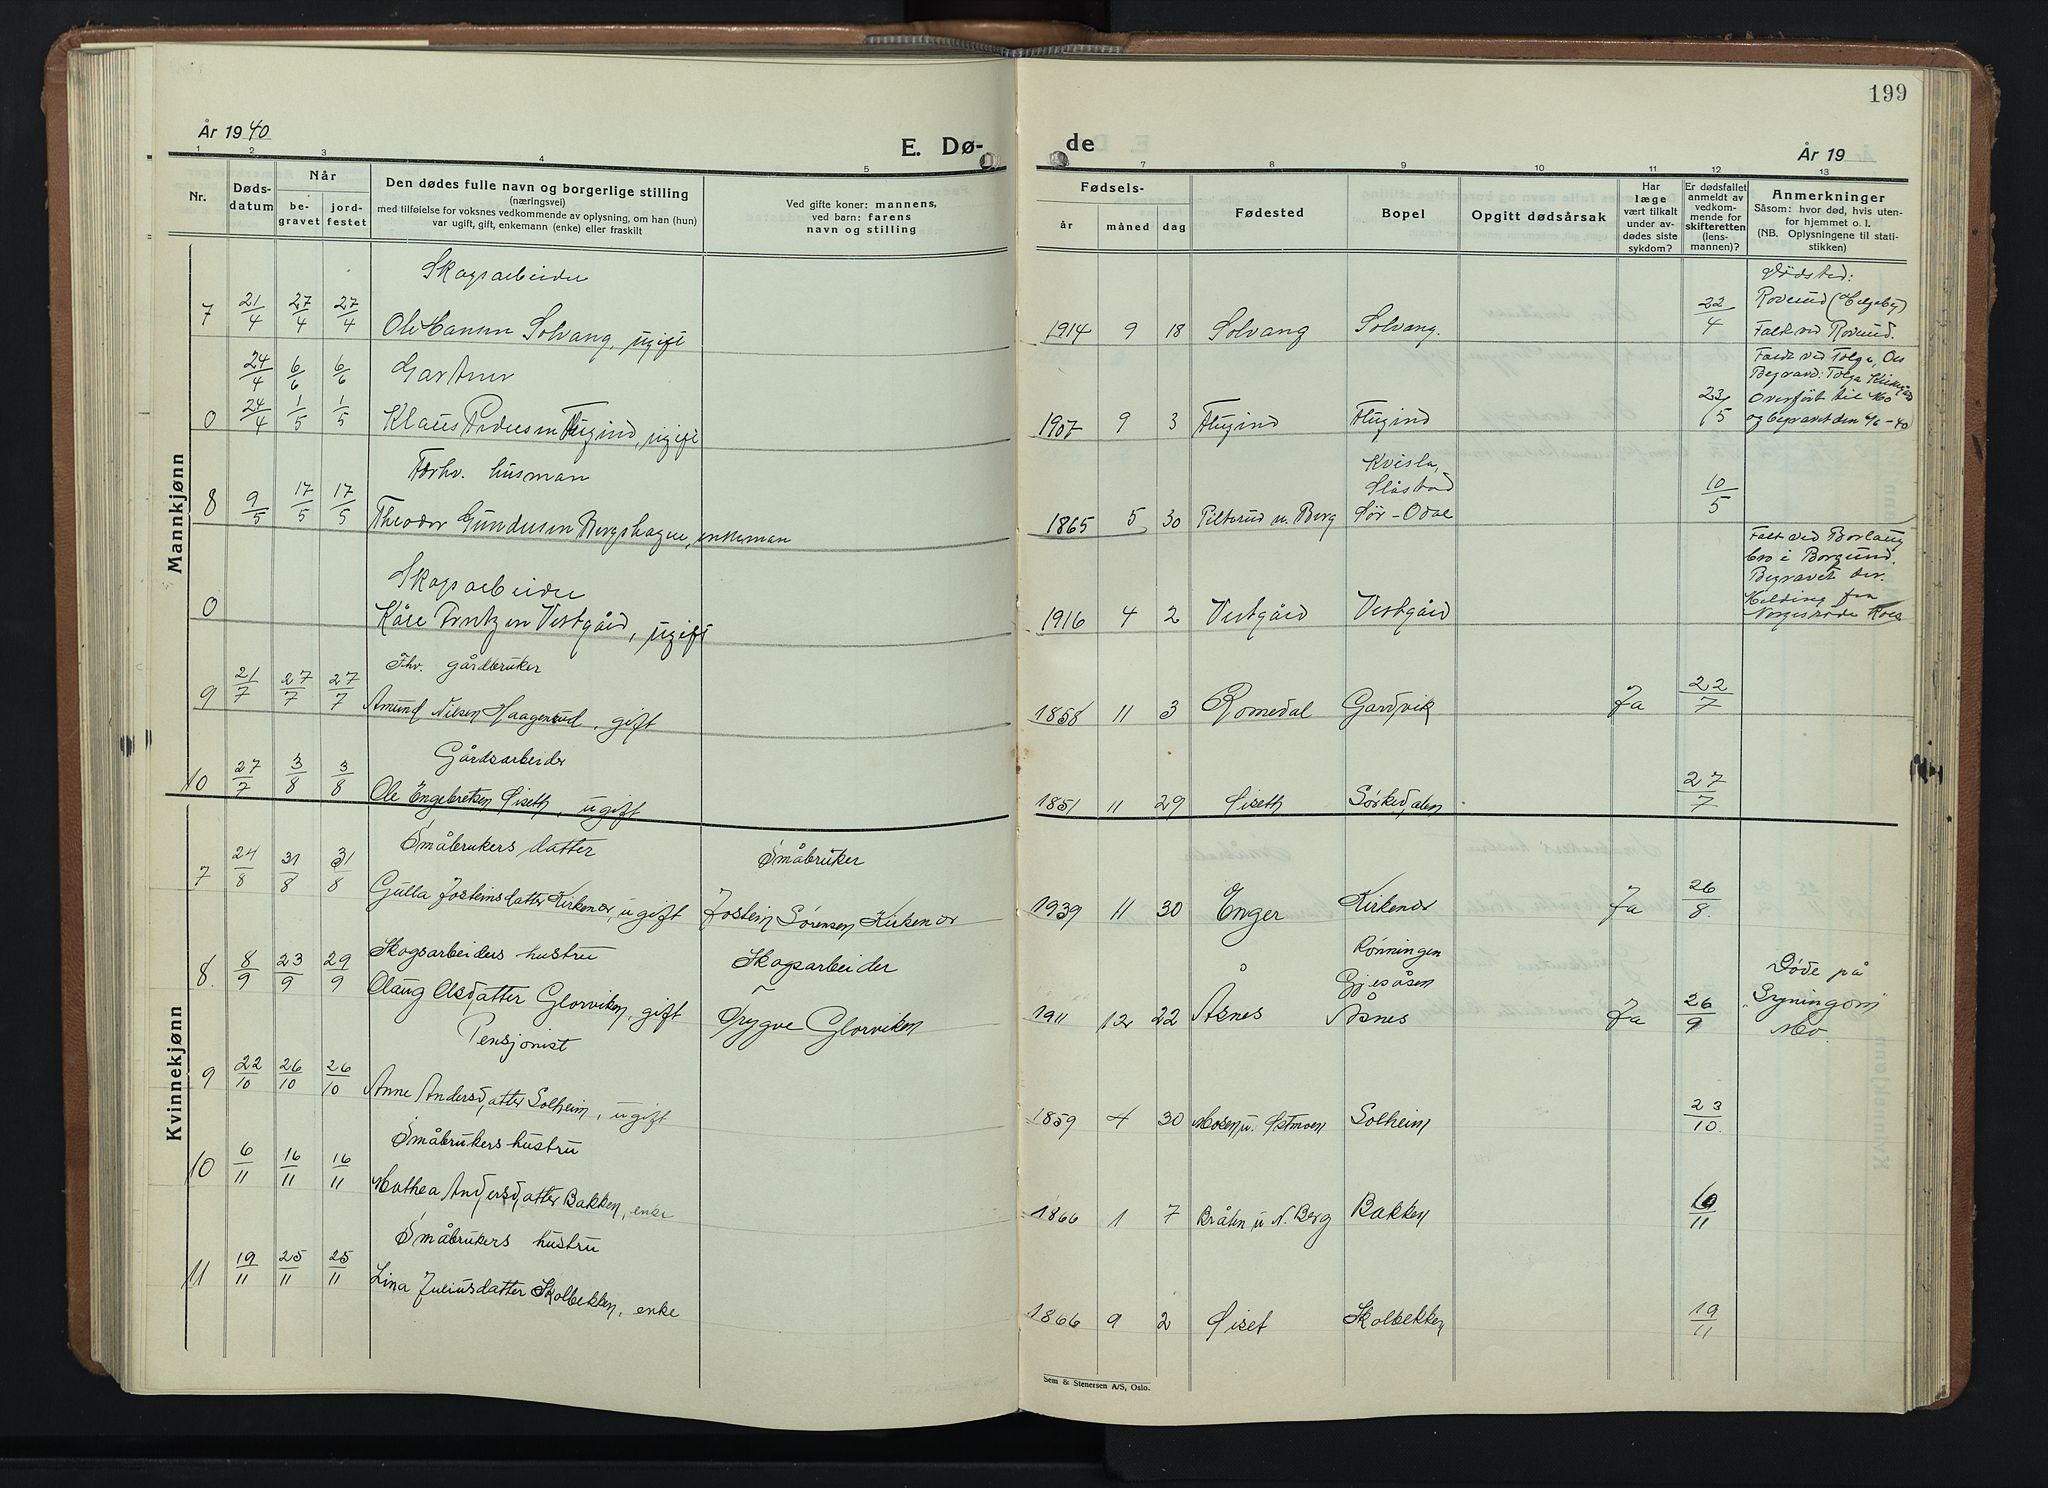 199
År 1940
E. Dø-
de
År 19
1 2 3 4 5
7 8 9 10 11 12 13
Nr.
Døds-
datum
Når
be-
gravet
jord-
festet
Den dødes fulle navn og borgerlige stilling
(næringsvei)
med tilføielse for voksnes vedkommende av oplysning, om han (hun)
var ugift, gift, enkemann (enke) eller fraskilt
Ved gifte koner: mannens,
ved barn: farens
navn og stilling
Fødsels-
år måned dag
Fødested
Bopel
Opgitt dødsårsak
Har
læge
vært tilkalt
under av-
dødes siste
sykdom?
Er dødsfallet
anmeldt av
vedkom-
mende for
skifteretten
(lens-
mannen)?
Anmerkninger
Såsom: hvor død, hvis uten-
for hjemmet o. l.
(NB. Oplysningene til stati-
stikken)
Mannkjønn
Skogsarbeider
7 21/4 27/4 27/4 Ole Hansen Solvang, ugift 1914 9 18 Solvang Solvang. 22/4
Dødsted:
Roverud (Helgeby)
Falt ved Roverud.
24/4 6/6 6/6 Gartner
0 24/4 1/5 1/5 Klaus Pedersen Flugind, ugift 1907 9 3 Flugind Flugind 23/5
Falt ved Tolga, Os
Begravd: Tolga Kirkegård
Overført til Mo
og begravet den 6/6-40
Forhv. husman
8 9/5 17/5 17/5 Theodor Gundersen Bergshagen, enkeman 1865 5 30 Pilterud u. Berg
Kvisla,
Slåstad
Sør-Odal
10/5
Skogsarbeider
0 Kåre Frntzen Vestgård, ugift 1916 4 2 Vestgård Vestgård
Falt ved Borlaug
bro i Borgund.
Begravet der.
Melding fra
Norges røde Kors
Fhv. gårdbruker
9 21/7 27/7 27/7 Amund Nilsen Haagensrud, gift 1858 11 3 Romedal Gardvik Ja 22/7
Gårdsarbeider
10 27/7 3/8 3/8 Ole Engebretsen Øiseth, ugift 1851 11 29 Øiseth Sørkedalen 27/7
Kvinnekjønn
Småbrukers datter Småbruker
7 24/8 31/8 31/8 Gulla Josteinsdatter Kirkenær, ugift Jostein Sørensen Kirkenær 1939 11 30 Enger Kirkenær Ja 26/8.
Skogsarbeiders hustru Skogsarbeider
8. 8/9 23/9 29/9 Olaug Olsdatter Glorviken, gift Trygve Glorviken 1911 12 22 Åsnes
Rønningen
Gjesåsen
Åsnes
Ja 26/9
Døde på
"Gyningom"
Mo.
Pensjonist
9 22/10 26/10 26/10 Anne Andersdatter Solheim, ugift 1859 4 30 Mosen u. Østmoen Solheim 23/10.
Småbrukers hustru
10 6/11 16/11 16/11 Mathea Andersdatter Bakken, enke 1866 1 7 Bråten u N. Berg Bakken 10/11
Småbrukers hustru
11 19/11 25/11 25/11 Lina Juliusdatter Skolbekken, enke 1866 9 2 Øiset Skolbekken 19/11
Sem & Stenersen A/S, Oslo.